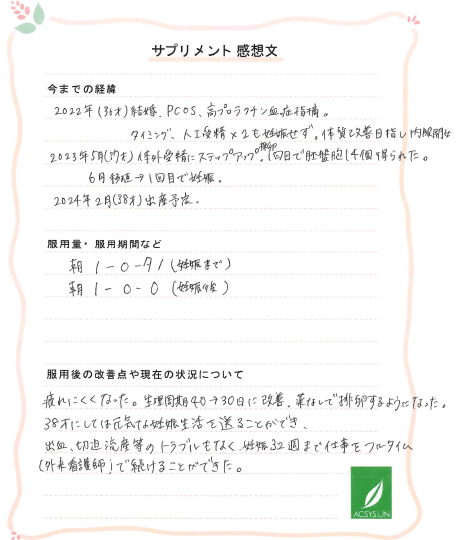 サプリメント 感想文
今までの経緯
2022年(36才)結婚、PCOS、高プロラクチン血症指摘。
タイミング、人工受精×2も妊娠せず。体質改善目指し内服開始
2023年5月(37才)体外受精にステップアップ。採卵1回目で胚盤胞14個得られた。
6月移植→1回目で妊娠。
2024年2月(38才)出産予定。
服用量・服用期間など
朝 1-0-夕1(妊娠まで)
朝 1-0-0 (妊娠後)
服用後の改善点や現在の状況について
疲れにくくなった。生理周期40→30日に改善、薬なしで排卵するようになった。
38才にしては元気な妊娠生活を送ることができ、
出血、切迫流産等のトラブルもなく妊娠32週まで仕事をフルタイム
(外来看護師)で続けることができた。
ACSYSUN